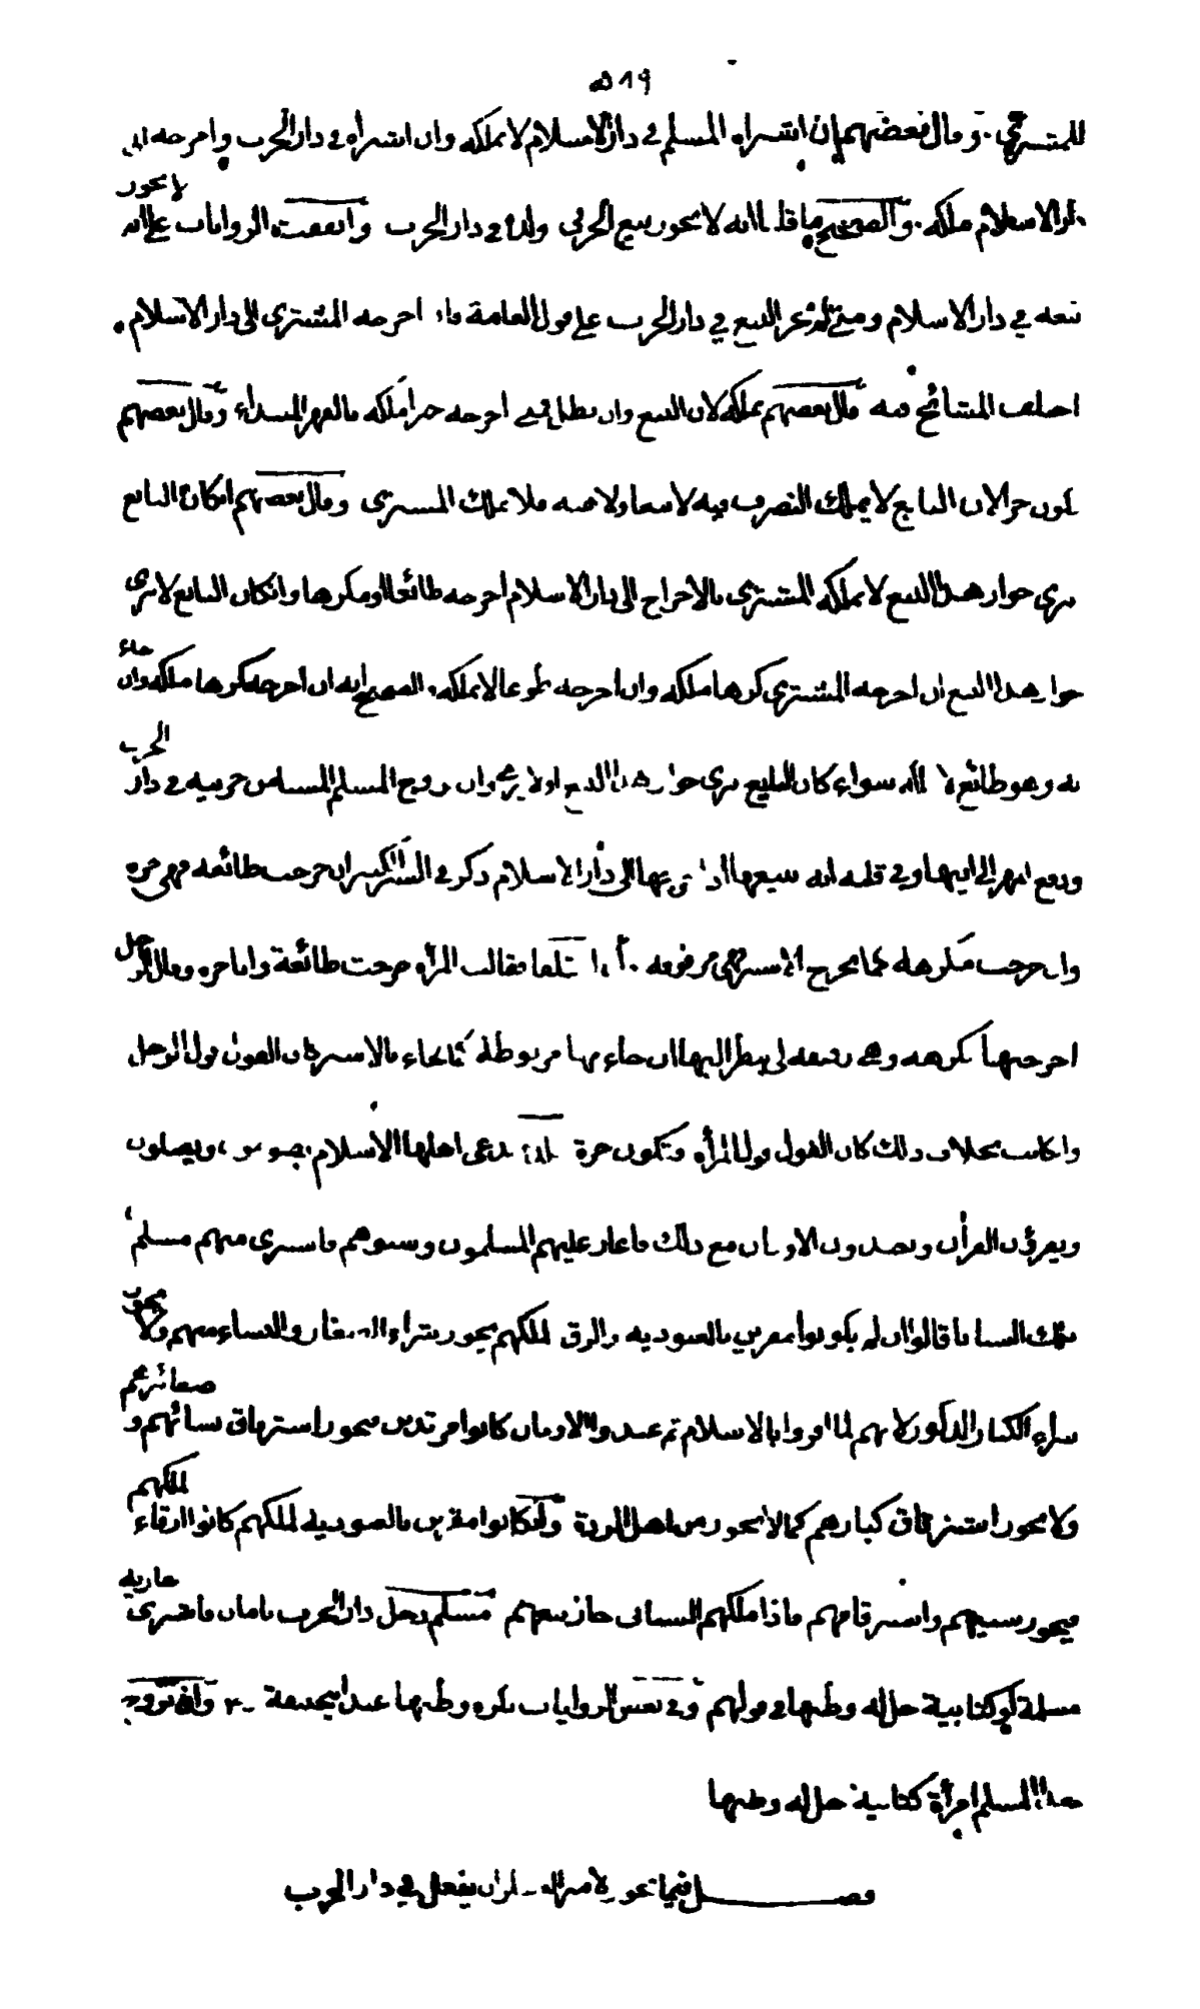 ٥١٩
للمشتري . وقال بعضهم إن اشتراه المسلم في دار الاسلام لا يملكه وان اشتراه في دار الحرب واخرجه الى
دار الاسلام ملكه . والصحيح ما قلنا انه لا يجوز بيع الحربي ولده في دار الحرب واتفقت الروايات على انه لا يجوز
بيعه في دار الاسلام ومتى لم يجز البيع في دار الحرب على قول العامة فاذا اخرجه المشتري الى دار الاسلام .
اختلف المشائخ فيه قال بعضهم يملكه لان البيع وان بطل فمتى اخرجه جبرا ملكه بالقهر ابتداء وقال بعضهم
يكون حرا لان البايع لا يملك التصرف فيه لا بيعا ولا هبة فلا يملك المشتري وقال بعضهم ان كان البايع
يرى جواز هذا البيع لا يملكه المشتري بالاخراج الى دار الاسلام اخرجه طائعا او مكرها وان كان البايع لا يرى
جواز هذا البيع ان اخرجه المشتري كرها ملكه وان اخرجه طوعا لا يملكه . الصحيح انه ان اخرجه كرها ملكه وان جاء
به وهو طائع لا يملكه سواء كان البايع يرى جواز هذا البيع او لا يرى وان تزوج المسلم المستأمن حربية في دار الحرب
ودفع المهر الى ابيها وفي قلبه انه يبيعها اذا خرج بها الى دار الاسلام ذكر في السير الكبير ان خرجت طائعة فهي حرة
وان خرجت مكرهة كما يخرج الاسير فهي مرقوقة . اختلفا فقالت المرأة خرجت طائعة وانا حرة وقال الرجل
اخرجتها مكرهة وهي رقيقة لي ينظر اليها ان جاء بها مربوطة كما يجاء بالاسير كان القول قول الرجل
وان كانت بخلاف ذلك كان القول قول المرأة وتكون حرة بلدة يدعي اهلها الاسلام يصومون ويصلون
ويقرؤن القرآن ويعبدون الاوثان مع ذلك فاغار عليهم المسلمون وسبوهم فاشترى منهم مسلم
من تلك السبايا قالوا ان لم يكونوا مقرين بالعبودية والرق لملكهم يجوز شراء الصغار والنساء منهم ولا يجوز
شراء الكبار الذكور لانهم لما اقروا بالاسلام ثم عبدوا الاوثان كانوا مرتدين فيجوز استرقاق نسائهم و صغائرهم
ولا يجوز استرقاق كبارهم كما لا يجوز من اهل الردة وان كانوا مقرين بالعبودية لملكهم كانوا ارقاء لملكهم
فيجوز سبيهم واسترقاقهم فاذا ملكهم السابي جاز بيعهم مسلم دخل دار الحرب بامان فاشترى جارية
مسلمة او كتابية حل له وطئها في قولهم وفي بعض الروايات يكره وطئها عند ابي حنيفة وان تزوج
هذا المسلم امرأة كتابية حل له وطئها
فصل فيما يجوز للاسير ان يفعل في دار الحرب